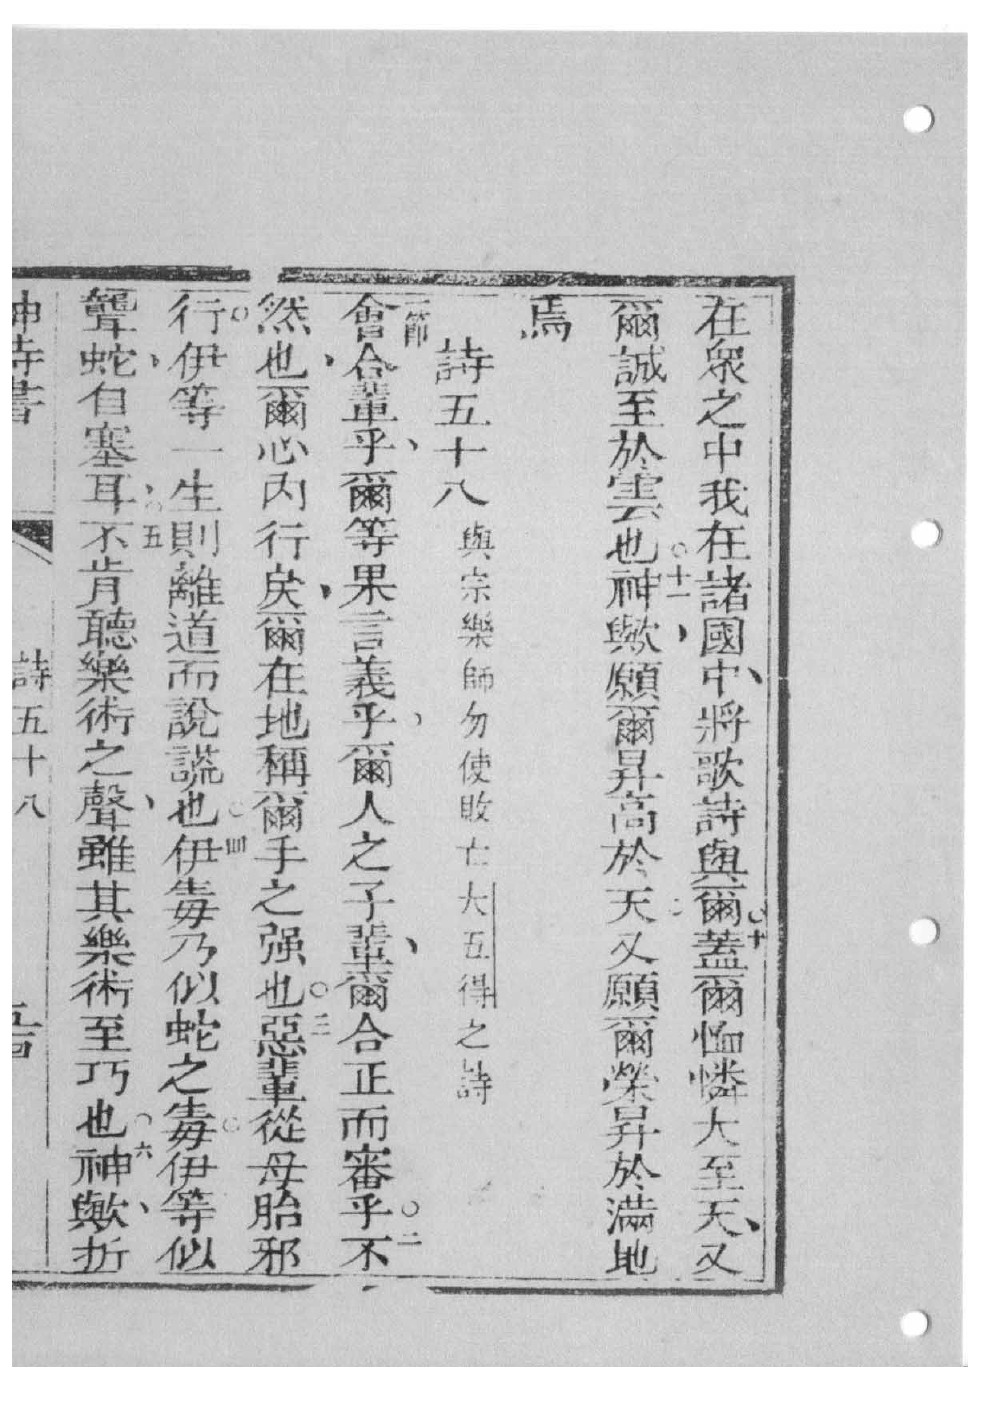 在衆之中我在諸國中、將歌詩與爾○十蓋爾恤憐大至天、又
爾誠至於雲也○十一神歟、願爾昇高於天○又願爾榮昇於滿地
焉
詩五十八 與宗樂師勿使敗亡大五得之詩
一節會合輩乎、爾等果言義乎、爾人之子輩、爾合正而審乎○二不
然也、爾心內行戾、爾在地稱爾手之强也○三惡輩從母胎邪
行○伊等一生則離道而說謊也○四伊毒乃似蛇之毒○伊等似
聾蛇、自塞耳、○五不肯聽樂術之聲、雖其樂術至巧也○六神歟、折
神詩書 詩五十八